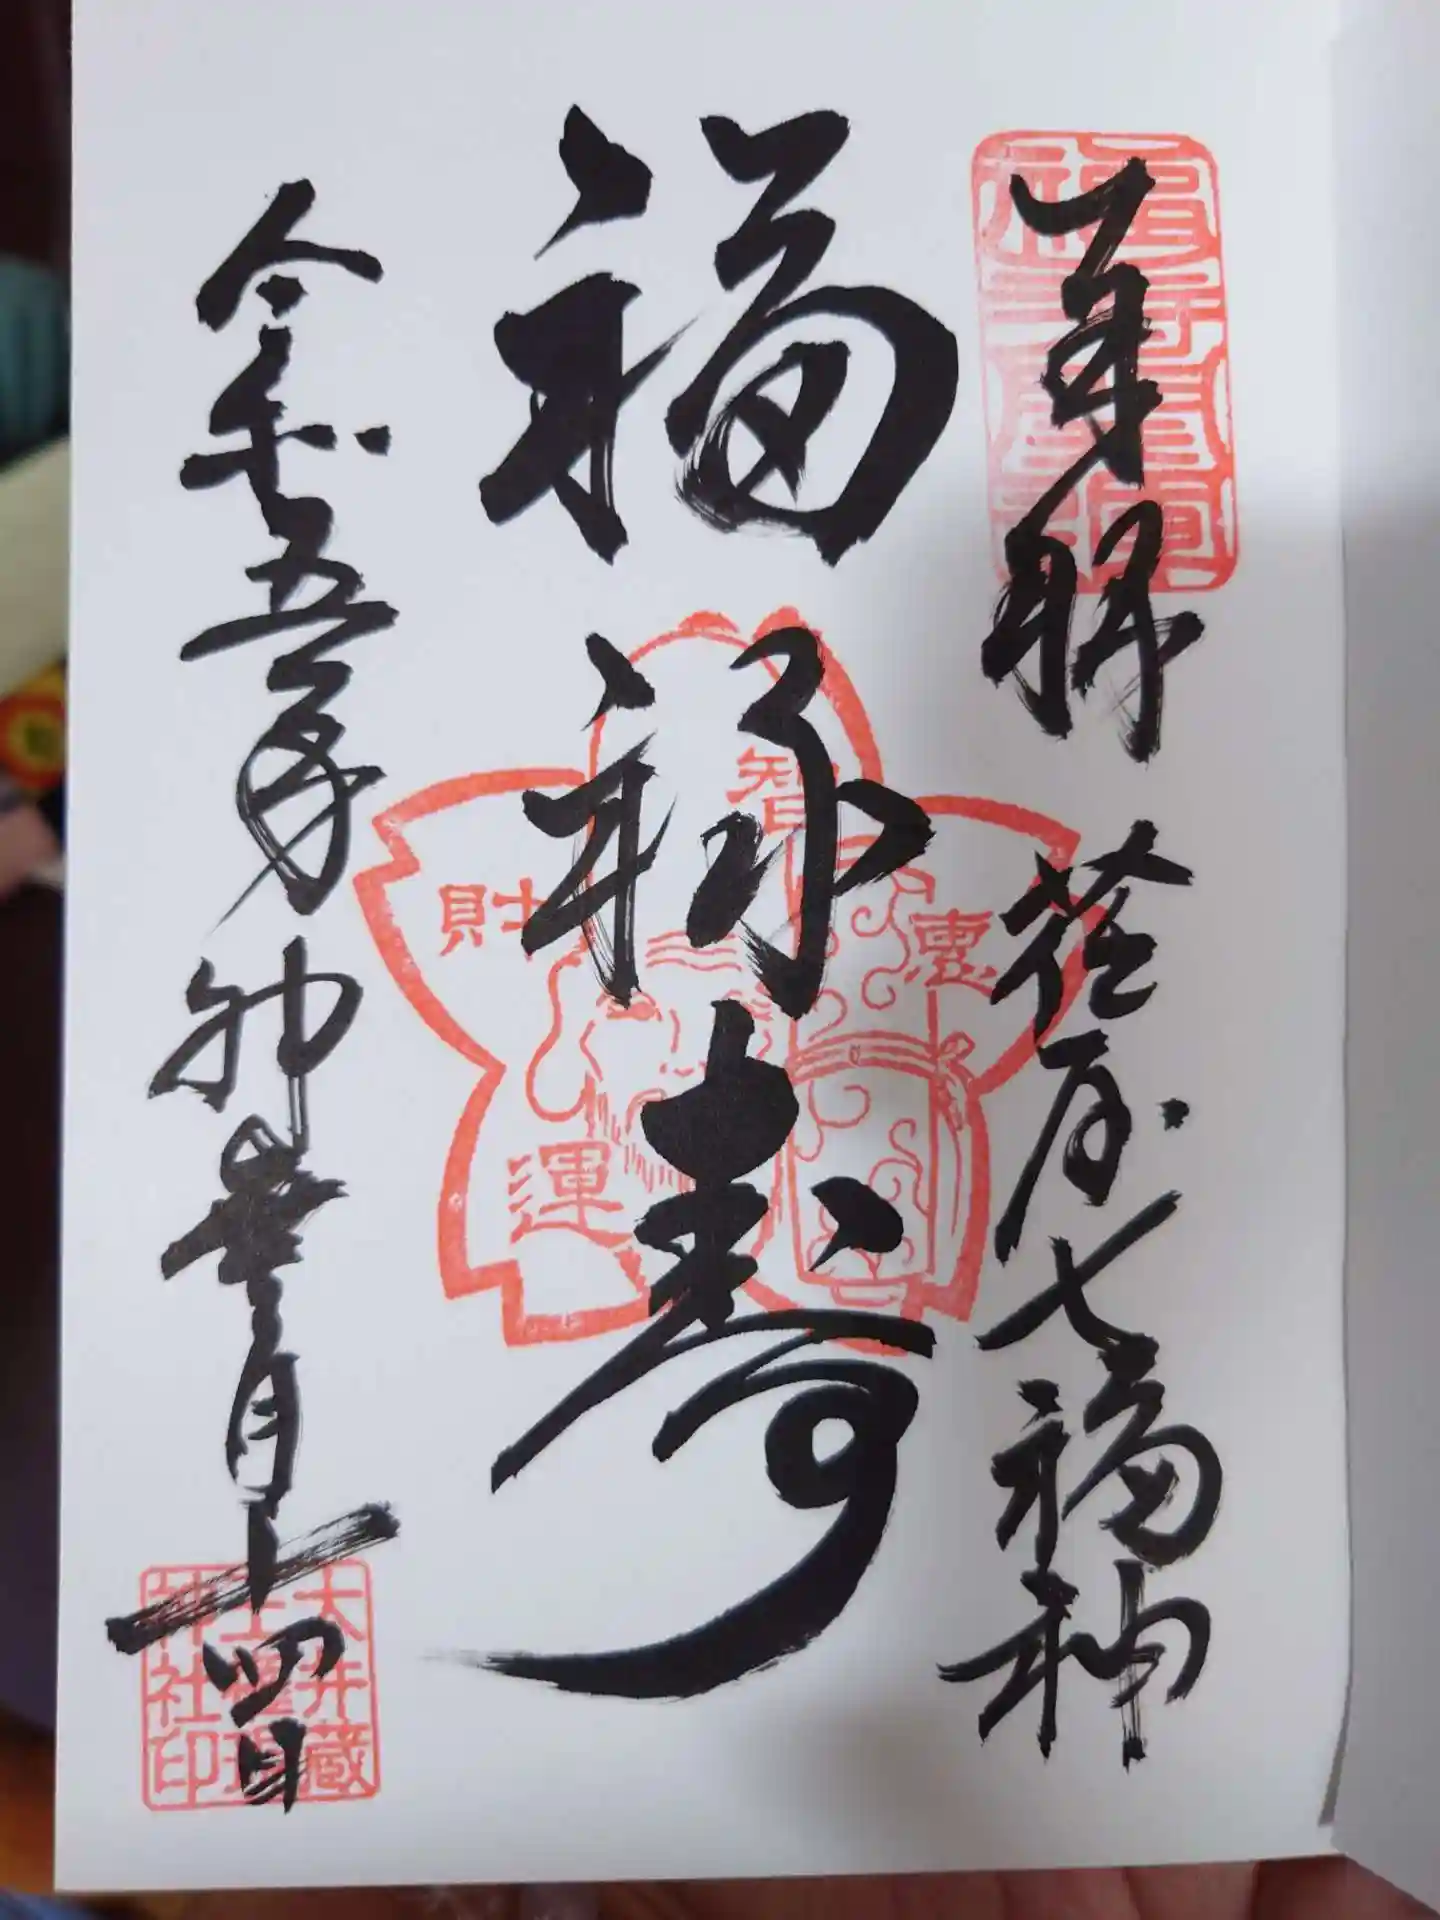 奉拝 荏原七福神
福禄寿
令和五年卯 月十四日
智
恵
財
運
大井蔵
王権現
神社印